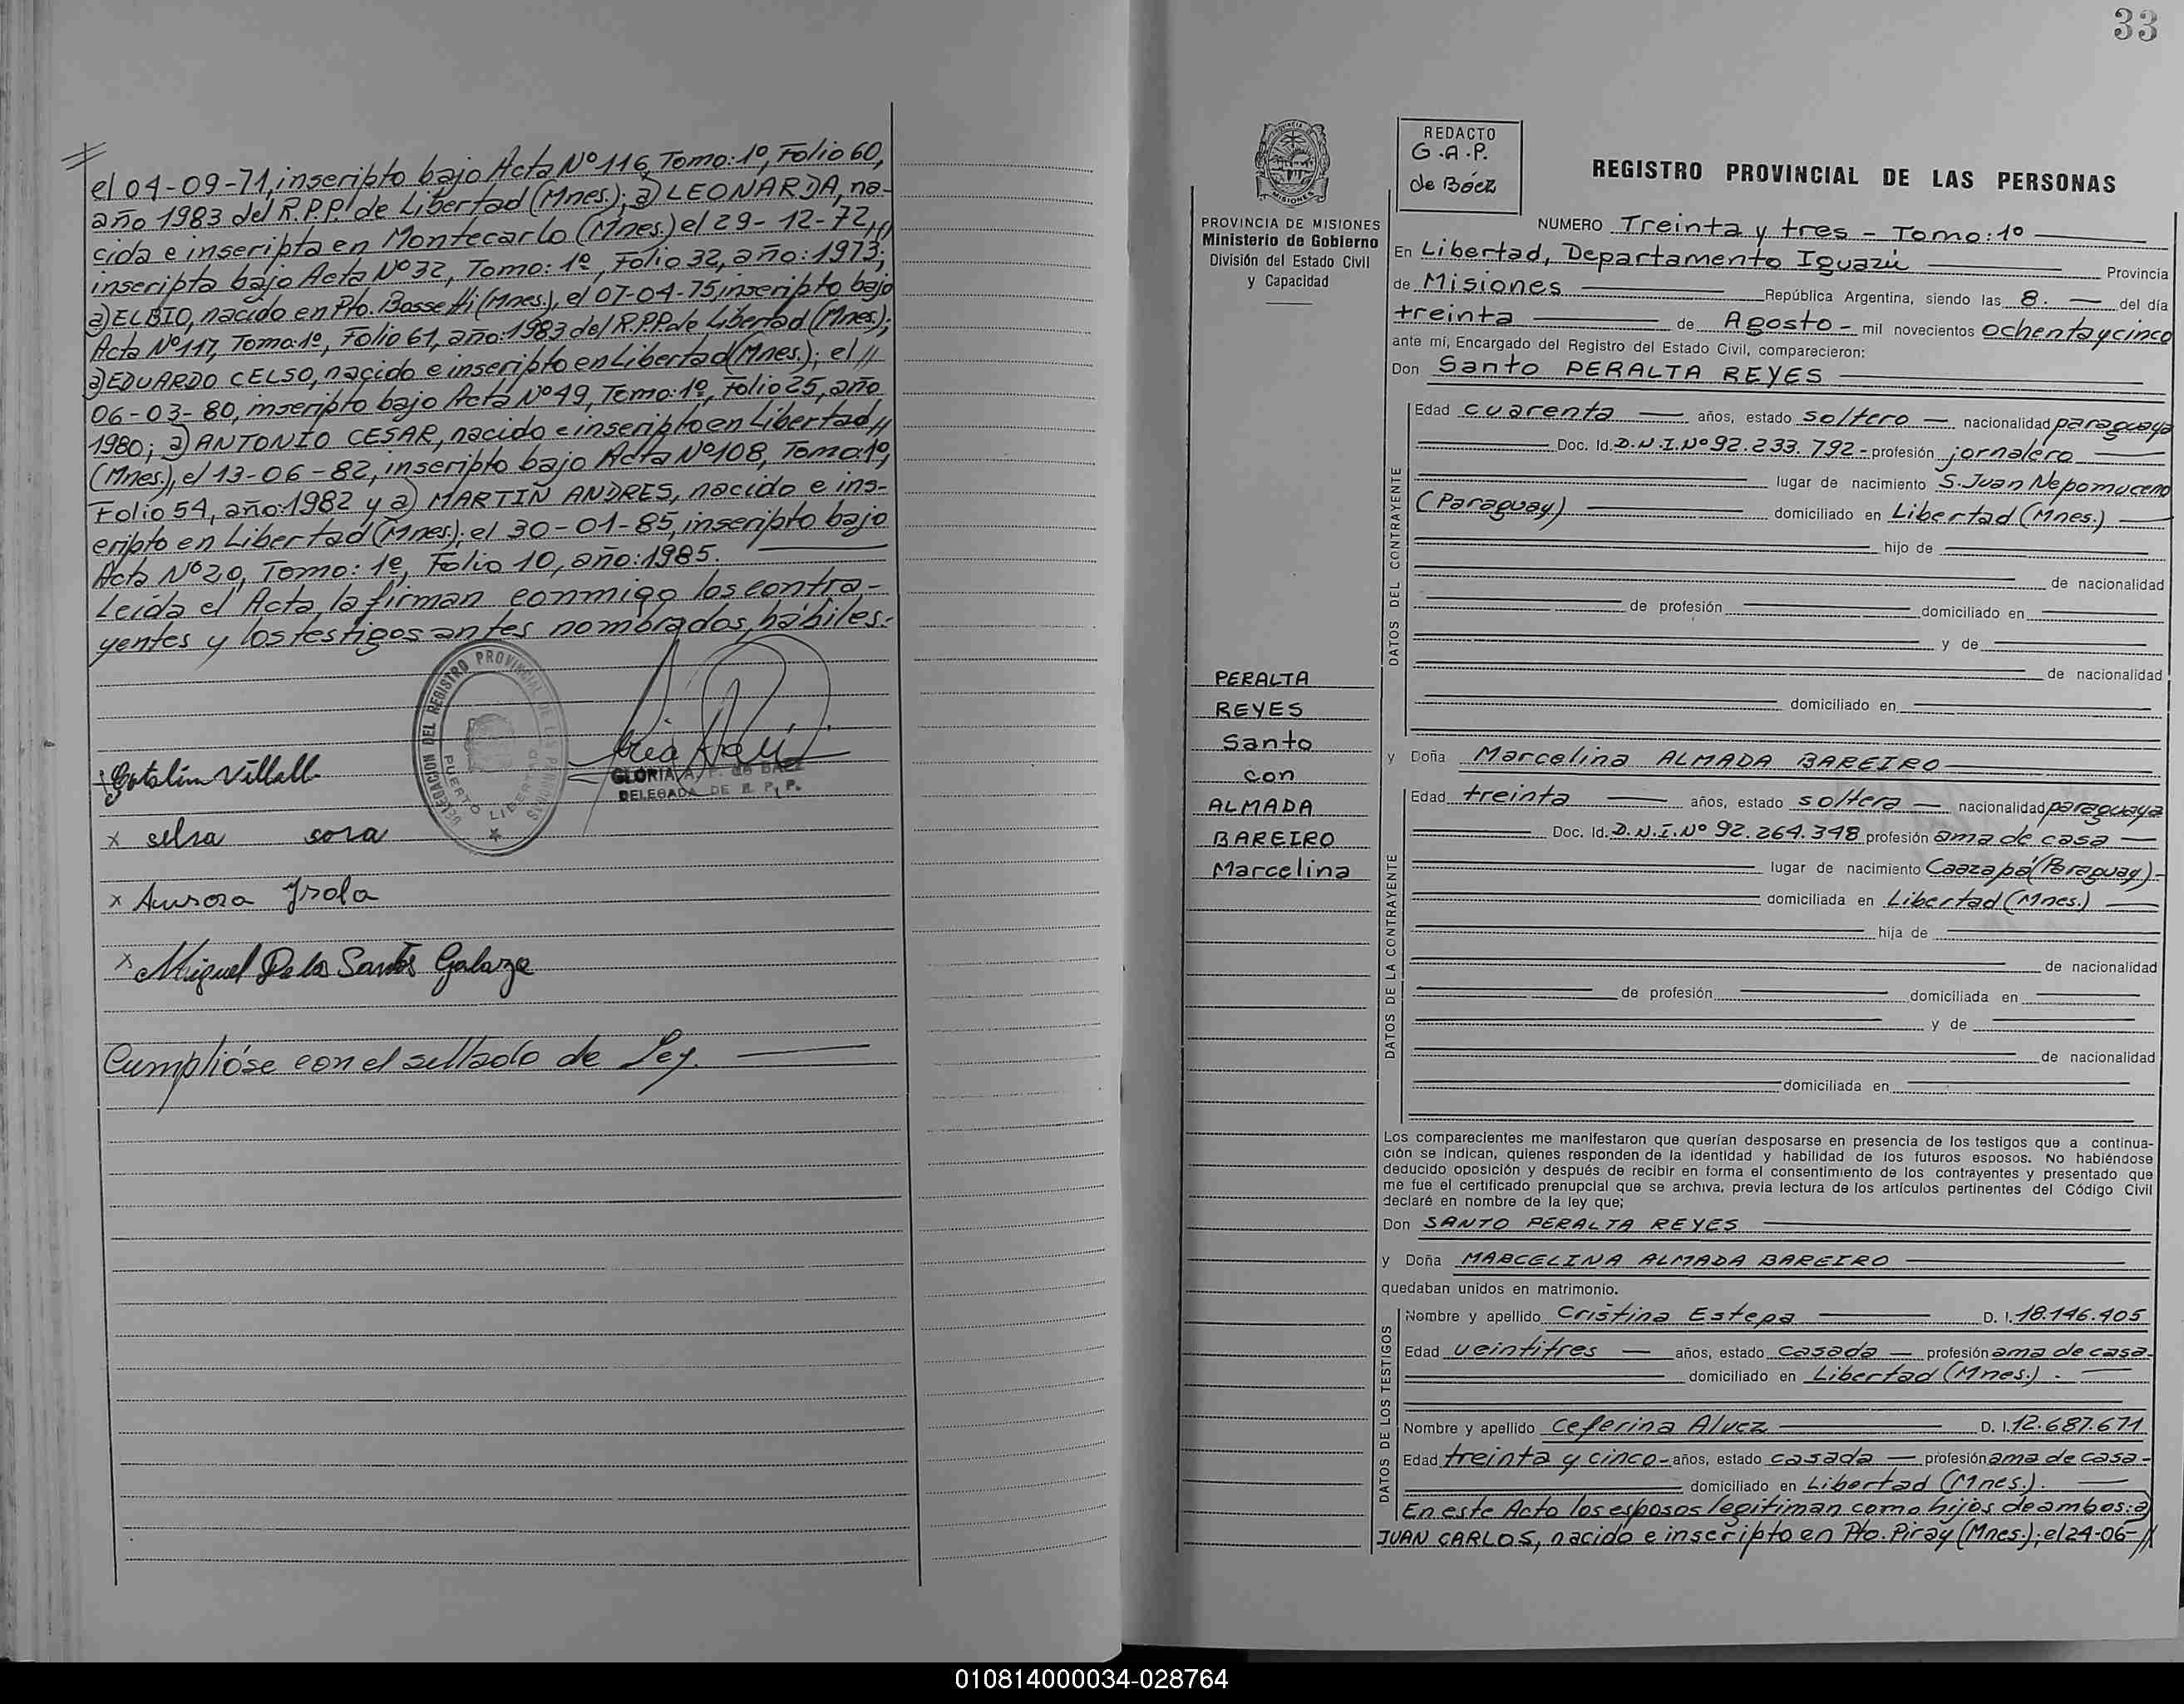 el 04-09-71, inscripto bajo Acta Nº 116, Tomo: 1º, Folio 60,
año 1983 del R.P.P. de Libertad (Mnes.); a) LEONARDA, na-
cida e inscripta en Montecarlo (Mnes.) el 29-12-72, //
inscripta bajo Acta Nº 32, Tomo: 1º, Folio 32, año: 1973;
a) ELBIO, nacido en Pto. Bossetti (Mnes.), el 07-04-75, inscripto bajo
Acta Nº 117, Tomo: 1º, Folio 61, año: 1983 del R.P.P. de Libertad (Mnes.);
a) EDUARDO CELSO, nacido e inscripto en Libertad (Mnes.); el //
06-03-80, inscripto bajo Acta Nº 49, Tomo: 1º, Folio 25, año
1980; a) ANTONIO CESAR, nacido e inscripto en Libertad //
(Mnes.), el 13-06-82, inscripto bajo Acta Nº 108, Tomo: 1º,
Folio 54, año: 1982 y a) MARTIN ANDRES, nacido e ins-
cripto en Libertad (Mnes.); el 30-01-85, inscripto bajo
Acta Nº 20, Tomo: 1º, Folio 10, año: 1985.
Leída el Acta, la firman conmigo los contra-
yentes y los testigos antes nombrados, hábiles.
DELEGACION DEL REGISTRO PROVINCIAL DE LAS PERSONAS
PUERTO LIBERTAD
GLORIA A. P. de BAEZ
DELEGADA DE R. P. P.
x Aurora Isola
x Miguel De los Santos Galarza
Cumplióse con el sellado de Ley.
33
PROVINCIA DE MISIONES
Ministerio de Gobierno
División del Estado Civil
y Capacidad
PERALTA
REYES
Santo
con
ALMADA
BAREIRO
Marcelina
REDACTO
G.A.P.
de Báez
REGISTRO PROVINCIAL DE LAS PERSONAS
NUMERO Treinta y tres - Tomo: 1º
En Libertad, Departamento Iguazú Provincia
de Misiones República Argentina, siendo las 8. del día
treinta de Agosto - mil novecientos ochenta y cinco
ante mí, Encargado del Registro del Estado Civil, comparecieron:
Don Santo PERALTA REYES
DATOS DEL CONTRAYENTE
Edad cuarenta años, estado soltero nacionalidad paraguaya
Doc. Id. D.N.I. Nº 92.233.792- profesión jornalero
lugar de nacimiento S. Juan Nepomuceno
(Paraguay) domiciliado en Libertad (Mnes.)
hijo de
de nacionalidad
de profesión domiciliado en
y de
de nacionalidad
domiciliado en
y Doña Marcelina ALMADA BAREIRO
DATOS DE LA CONTRAYENTE
Edad treinta años, estado soltera nacionalidad paraguaya
Doc. Id. D.N.I. Nº 92.264.348 profesión ama de casa
lugar de nacimiento Caazapá (Paraguay)
domiciliada en Libertad (Mnes.)
hija de
de nacionalidad
de profesión domiciliada en
y de
de nacionalidad
domiciliada en
Los comparecientes me manifestaron que querían desposarse en presencia de los testigos que a continua-
ción se indican, quienes responden de la identidad y habilidad de los futuros esposos. No habiéndose
deducido oposición y después de recibir en forma el consentimiento de los contrayentes y presentado que
me fue el certificado prenupcial que se archiva, previa lectura de los artículos pertinentes del Código Civil
declaré en nombre de la ley que;
Don SANTO PERALTA REYES
y Doña MARCELINA ALMADA BAREIRO
quedaban unidos en matrimonio.
DATOS DE LOS TESTIGOS
Nombre y apellido Cristina Estepa D. I. 18.146.405
Edad veintitres años, estado casada profesión ama de casa.
domiciliado en Libertad (Mnes.).
Nombre y apellido Ceferina Alvez D. I. 12.687.671
Edad treinta y cinco- años, estado casada profesión ama de casa-
domiciliado en Libertad (Mnes.).
En este Acto los esposos legitiman como hijos de ambos: a)
JUAN CARLOS, nacido e inscripto en Pto. Piray (Mnes.); el 24-06- //
010814000034-028764